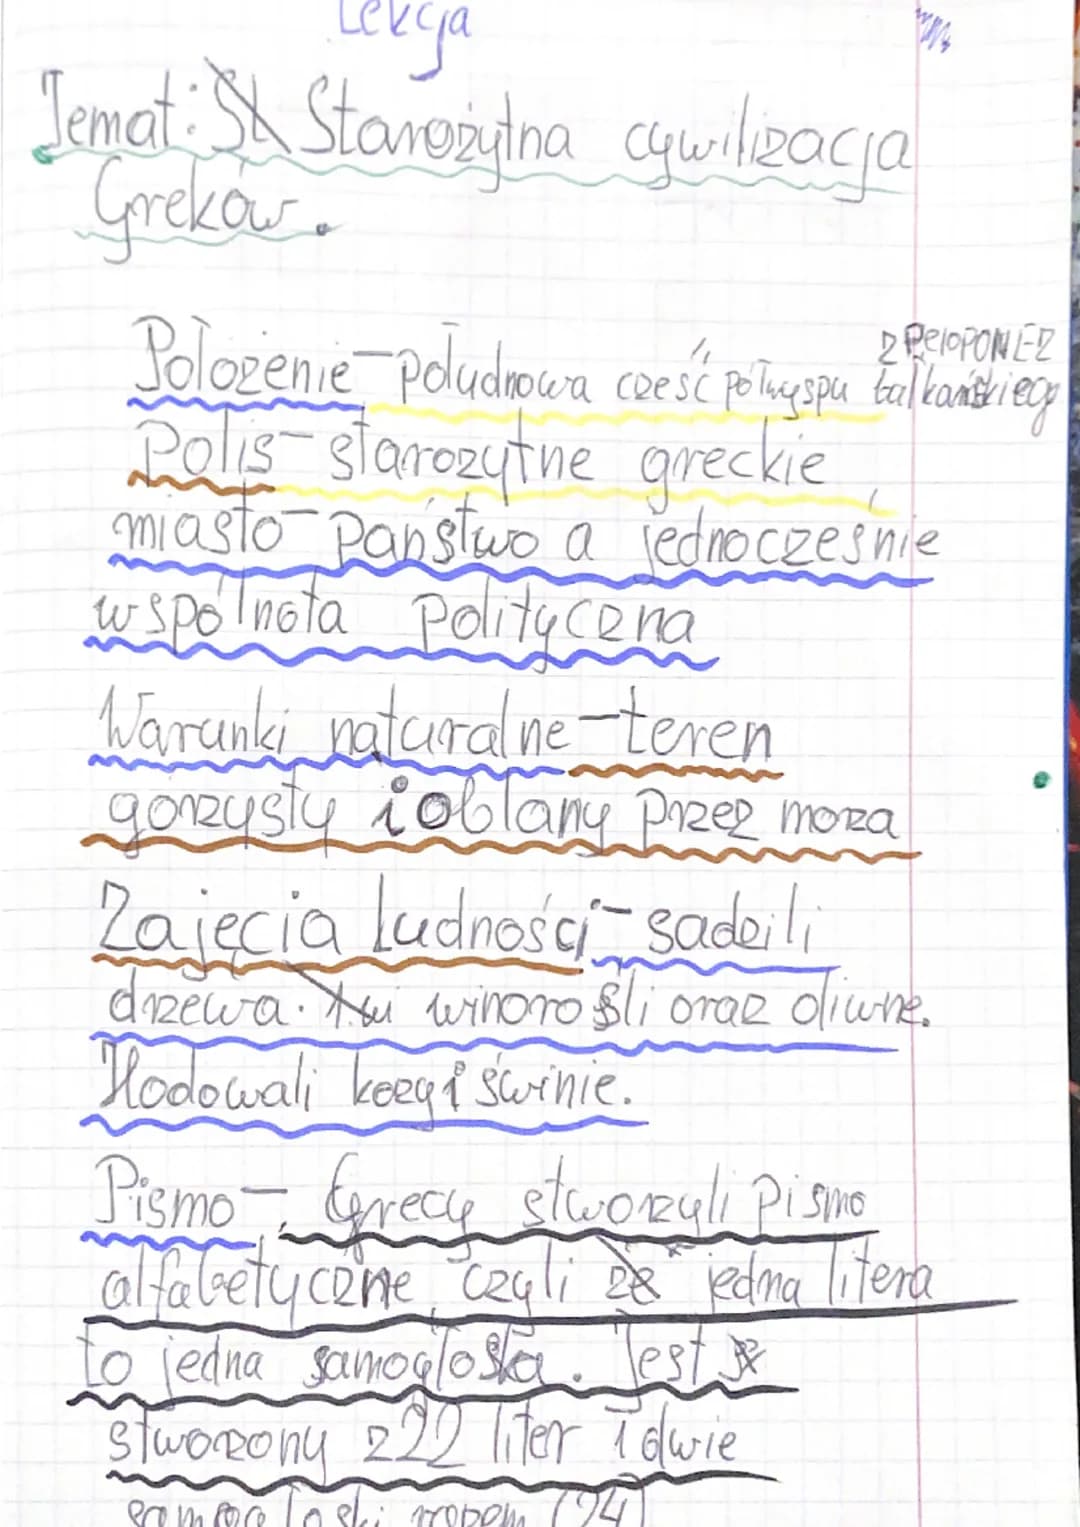 Lekcja
Temat: St Starożytna cywilizacja
Greków.
z PeloPONEZ
Polozenie - południowa cześć półwyspu bałkańskiego
Polis - starozytne greckie
miasto - państwo a jednocześnie
wspólnota polityczna
Warunki naturalne - teren
górzysty i oblany przez moża
Zajęcia ludności - sadzili
drzewa. winorośli oraz oliwne.
Hodowali kozy i świnie.
Pismo - Grecy stworzyli pismo
alfabetyczne czyli że jedna litera
to jedna samogłoska. Jest
stworzony z 22 liter i dwie
samogłoski razem (24)